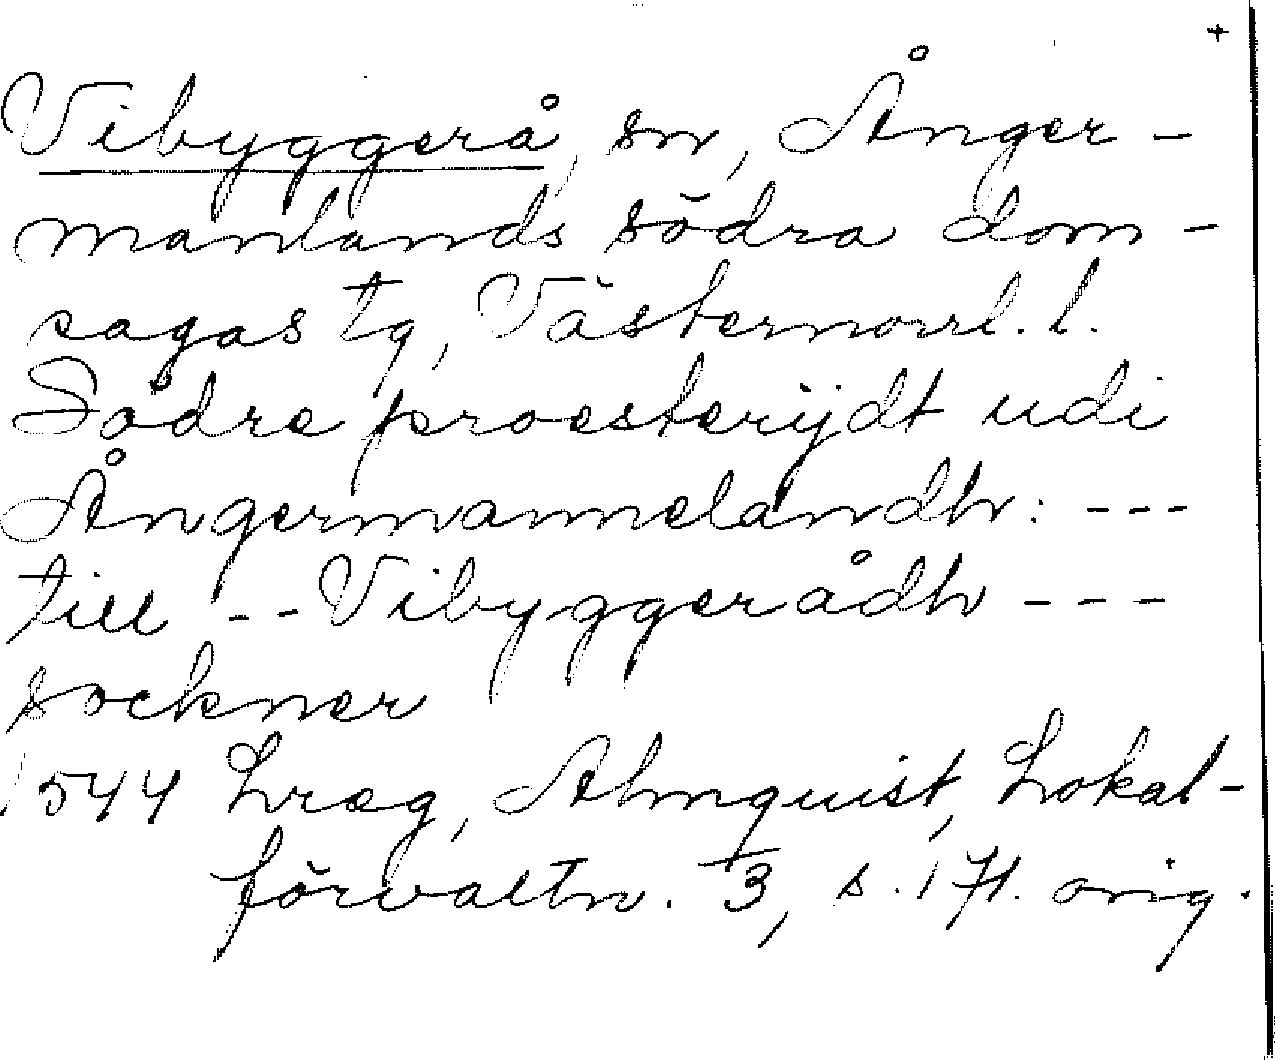 +
Vibyggerå, sn, Ånger-
manlands södra dom-
sagas tg, Västernorrl. l.
Södre proesterijdt udi
Ångermannelandh: ---
till -- Vibyggerådh ---
sockner
1544 Lreg, Almquist, Lokal-
förvaltn. 3, s. 171. orig.